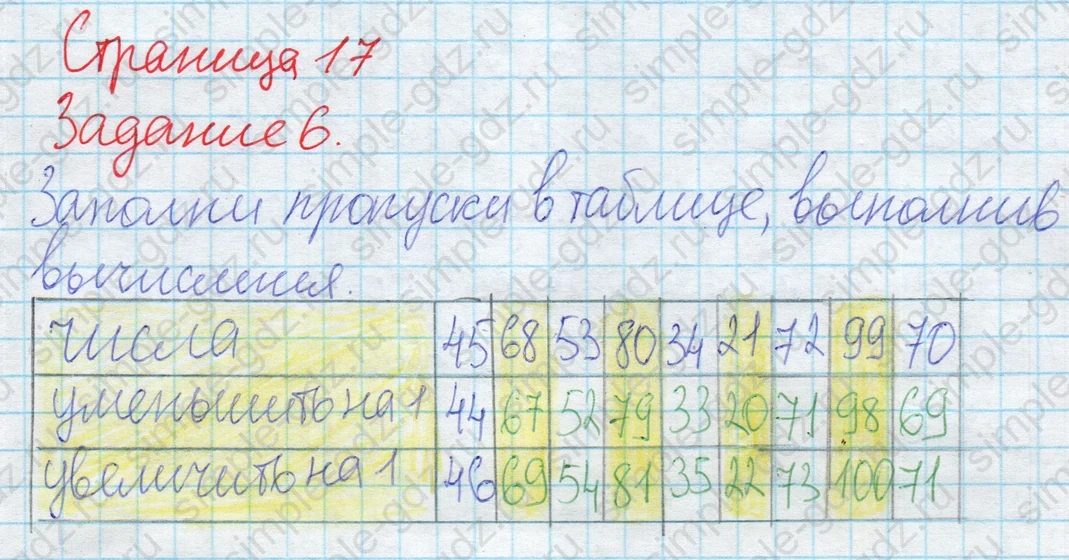 Страница 17
Задание 6.
Заполни пропуски в таблице, выполнив
вычисления.
числа 45 68 53 80 34 21 72 99 70
уменьшить на 1 44 67 52 79 33 20 71 98 69
увеличить на 1 46 69 54 81 35 22 73 100 71
simple-gdz.ru